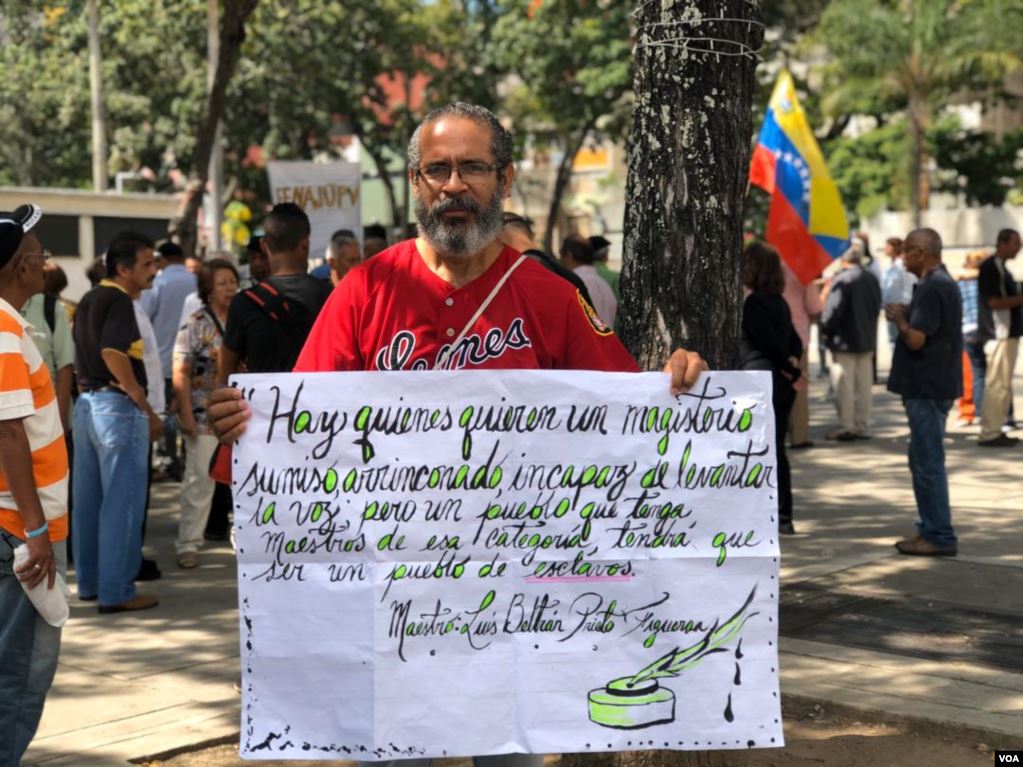 FENAJUPV
Leones
"Hay quienes quieren un magisterio
sumiso, arrinconado, incapaz de levantar
la voz, pero un pueblo que tenga
maestros de esa categoría, tendrá que
ser un pueblo de esclavos.
Maestro: Luis Beltrán Prieto Figueroa
VOA